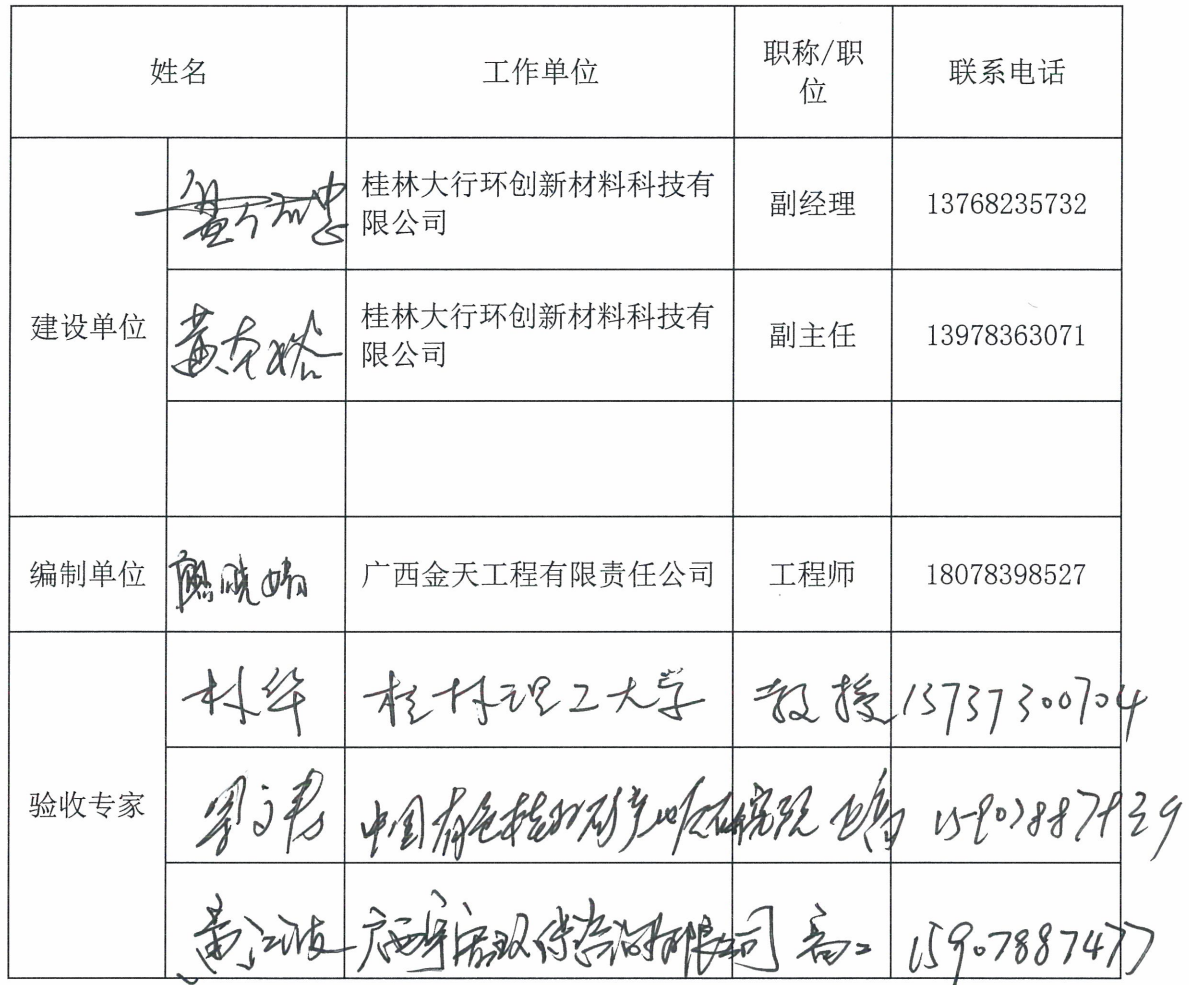 姓名 工作单位 职称/职 联系电话
位
桂林大行环创新材料科技有
限公司
副经理 13768235732
建设单位
黄
桂林大行环创新材料科技有
限公司
副主任 13978363071
编制单位 熊晓娟 广西金天工程有限责任公司 工程师 18078398527
林华 桂林理工大学 教授 13737300704
验收专家
中国有色桂林矿产地质研究院
黄江波 高工 15907887477